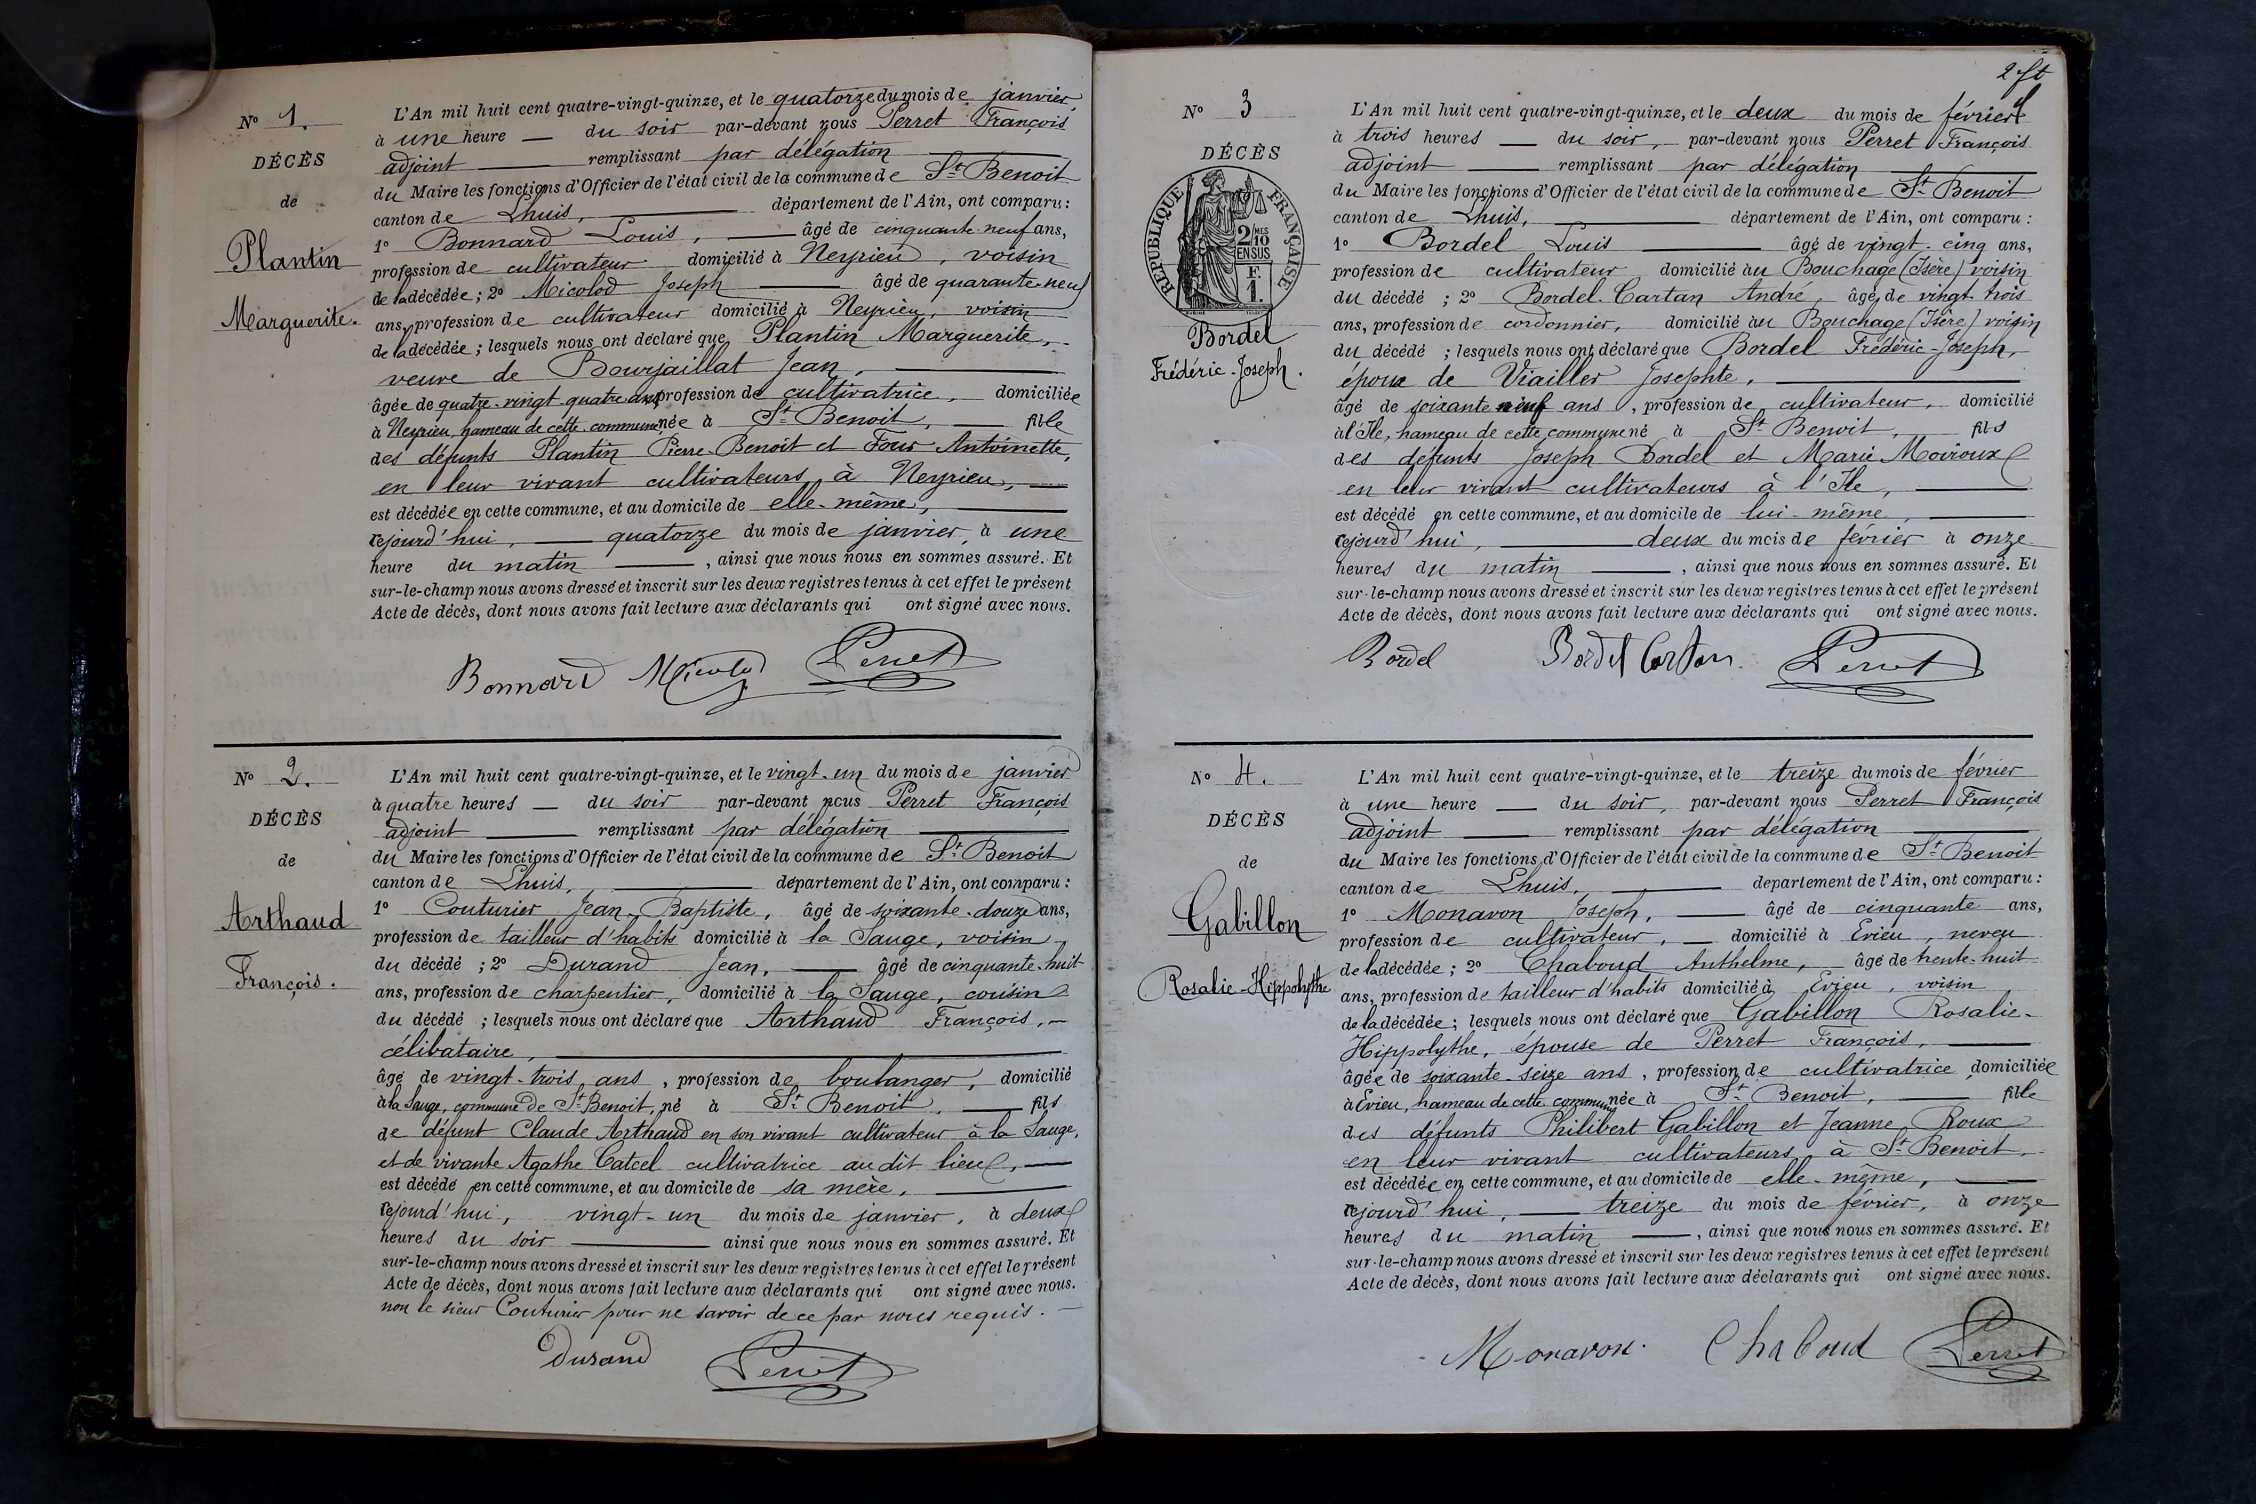 Nº 1.
DÉCÈS
de
Plantin
Marguerite.
L'An mil huit cent quatre-vingt-quinze, et le quatorze du mois de janvier,
à une heure — du soir par-devant nous Perret François
adjoint — remplissant par délégation —
du Maire les fonctions d'Officier de l'état civil de la commune de St Benoit
canton de Lhuis, — département de l'Ain, ont comparu :
1º Bonnard Louis, — âgé de cinquante-neuf ans,
profession de cultivateur domicilié à Neyrieu, voisin
de la décédée ; 2º Micolod Joseph — âgé de quarante-neuf
ans, profession de cultivateur domicilié à Neyrieu, voisin
de la décédée ; lesquels nous ont déclaré que Plantin Marguerite, -
veuve de Bourjaillat Jean, —
âgée de quatre-vingt-quatre ans, profession de cultivatrice, domiciliée
à Neyrieu, hameau de cette commune née à St Benoit, — fille
des défunts Plantin Pierre-Benoit et Four Antoinette,
en leur vivant cultivateurs à Neyrieu, —
est décédée en cette commune, et au domicile de elle-même, —
cejourd'hui, — quatorze du mois de janvier, à une
heure du matin —, ainsi que nous nous en sommes assuré. Et
sur-le-champ nous avons dressé et inscrit sur les deux registres tenus à cet effet le présent
Acte de décès, dont nous avons fait lecture aux déclarants qui ont signé avec nous.
Bonnard Micolod Perret
Nº 2.
DÉCÈS
de
Arthaud
François.
L'An mil huit cent quatre-vingt-quinze, et le vingt-un du mois de janvier
à quatre heures — du soir par-devant nous Perret François
adjoint — remplissant par délégation —
du Maire les fonctions d'Officier de l'état civil de la commune de St Benoit
canton de Lhuis, — département de l'Ain, ont comparu :
1º Couturier Jean-Baptiste, âgé de soixante-douze ans,
profession de tailleur d'habits domicilié à la Sauge, voisin
du décédé ; 2º Durand Jean, — âgé de cinquante-huit
ans, profession de charpentier, domicilié à la Sauge, cousin
du décédé ; lesquels nous ont déclaré que Arthaud François, -
célibataire, —
âgé de vingt-trois ans, profession de boulanger, domicilié
à la Sauge, commune de St Benoit, né à St Benoit, — fils
de défunt Claude Arthaud en son vivant cultivateur à la Sauge,
et de vivante Agathe Catcel cultivatrice au dit lieu, —
est décédé en cette commune, et au domicile de sa mère, —
cejourd'hui, vingt-un du mois de janvier, à deux
heures du soir — ainsi que nous nous en sommes assuré. Et
sur-le-champ nous avons dressé et inscrit sur les deux registres tenus à cet effet le présent
Acte de décès, dont nous avons fait lecture aux déclarants qui ont signé avec nous.
non le sieur Couturier pour ne savoir de ce par nous requis. -
Durand Perret
2
Nº 3
DÉCÈS
RÉPUBLIQUE FRANÇAISE
2 MES
10
EN SUS
F.
1.
Bordel
Frédéric-Joseph.
L'An mil huit cent quatre-vingt-quinze, et le deux du mois de février
à trois heures — du soir, par-devant nous Perret François
adjoint — remplissant par délégation —
du Maire les fonctions d'Officier de l'état civil de la commune de St Benoit
canton de Lhuis, — département de l'Ain, ont comparu :
1º Bordel Louis — âgé de vingt-cinq ans,
profession de cultivateur domicilié au Bouchage (Isère) voisin
du décédé ; 2º Bordel-Cartan André, âgé de vingt-trois
ans, profession de cordonnier, domicilié au Bouchage (Isère) voisin
du décédé ; lesquels nous ont déclaré que Bordel Frédéric-Joseph,
époux de Viailler Josephte, —
âgé de soixante neuf ans, profession de cultivateur, domicilié
à l'Ile, hameau de cette commune né à St Benoit, fils
des défunts Joseph Bordel et Marie Moiroux
en leur vivant cultivateurs à l'Ile, —
est décédé en cette commune, et au domicile de lui-même, —
cejourd'hui, — deux du mois de février à onze
heures du matin —, ainsi que nous nous en sommes assuré. Et
sur-le-champ nous avons dressé et inscrit sur les deux registres tenus à cet effet le présent
Acte de décès, dont nous avons fait lecture aux déclarants qui ont signé avec nous.
Bordel Bordel Cartan Perret
Nº 4.
DÉCÈS
de
Gabillon
Rosalie-Hippolythe
L'An mil huit cent quatre-vingt-quinze, et le treize du mois de février
à une heure — du soir, par-devant nous Perret François
adjoint — remplissant par délégation —
du Maire les fonctions d'Officier de l'état civil de la commune de St Benoit
canton de Lhuis, — département de l'Ain, ont comparu :
1º Monavon Joseph, — âgé de cinquante ans,
profession de cultivateur, — domicilié à Evieu, neveu
de la décédée ; 2º Chaboud Anthelme, âgé de trente-huit
ans, profession de tailleur d'habits domicilié à Evieu, voisin
de la décédée ; lesquels nous ont déclaré que Gabillon Rosalie-
Hippolythe, épouse de Perret François, —
âgée de soixante-seize ans, profession de cultivatrice domiciliée
à Evieu, hameau de cette commune née à St Benoit, — fille
des défunts Philibert Gabillon et Jeanne Roux
en leur vivant cultivateurs à St Benoit,
est décédée en cette commune, et au domicile de elle-même, —
cejourd'hui, — treize du mois de février, à onze
heures du matin —, ainsi que nous nous en sommes assuré. Et
sur-le-champ nous avons dressé et inscrit sur les deux registres tenus à cet effet le présent
Acte de décès, dont nous avons fait lecture aux déclarants qui ont signé avec nous.
Monavon. Chaboud Perret